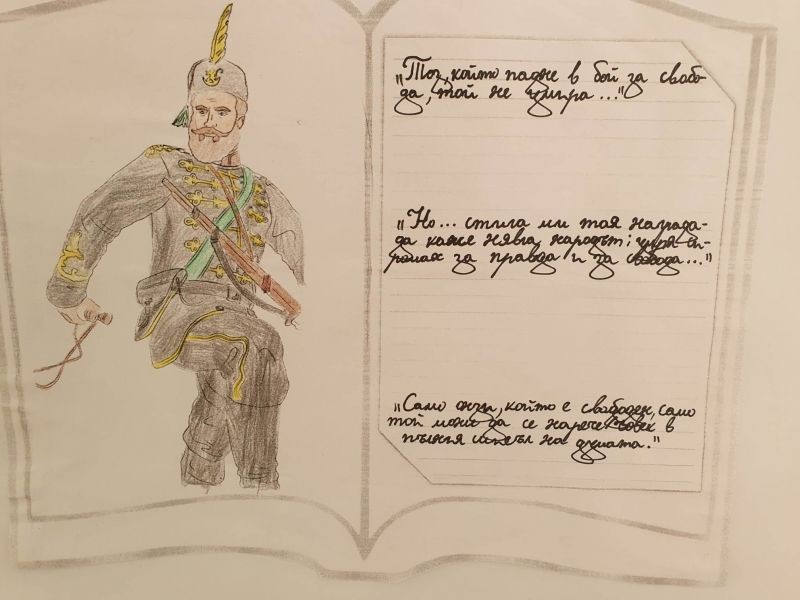 „Тоз, който падне в бой за свобо-
да, той не умира..."
„Но... стига ми тая награда-
да каже нявга народът: умря си-
ромах за правда и за свобода..."
„Само онзи, който е свободен, само
той може да се нарече човек в
пълния смисъл на думата."